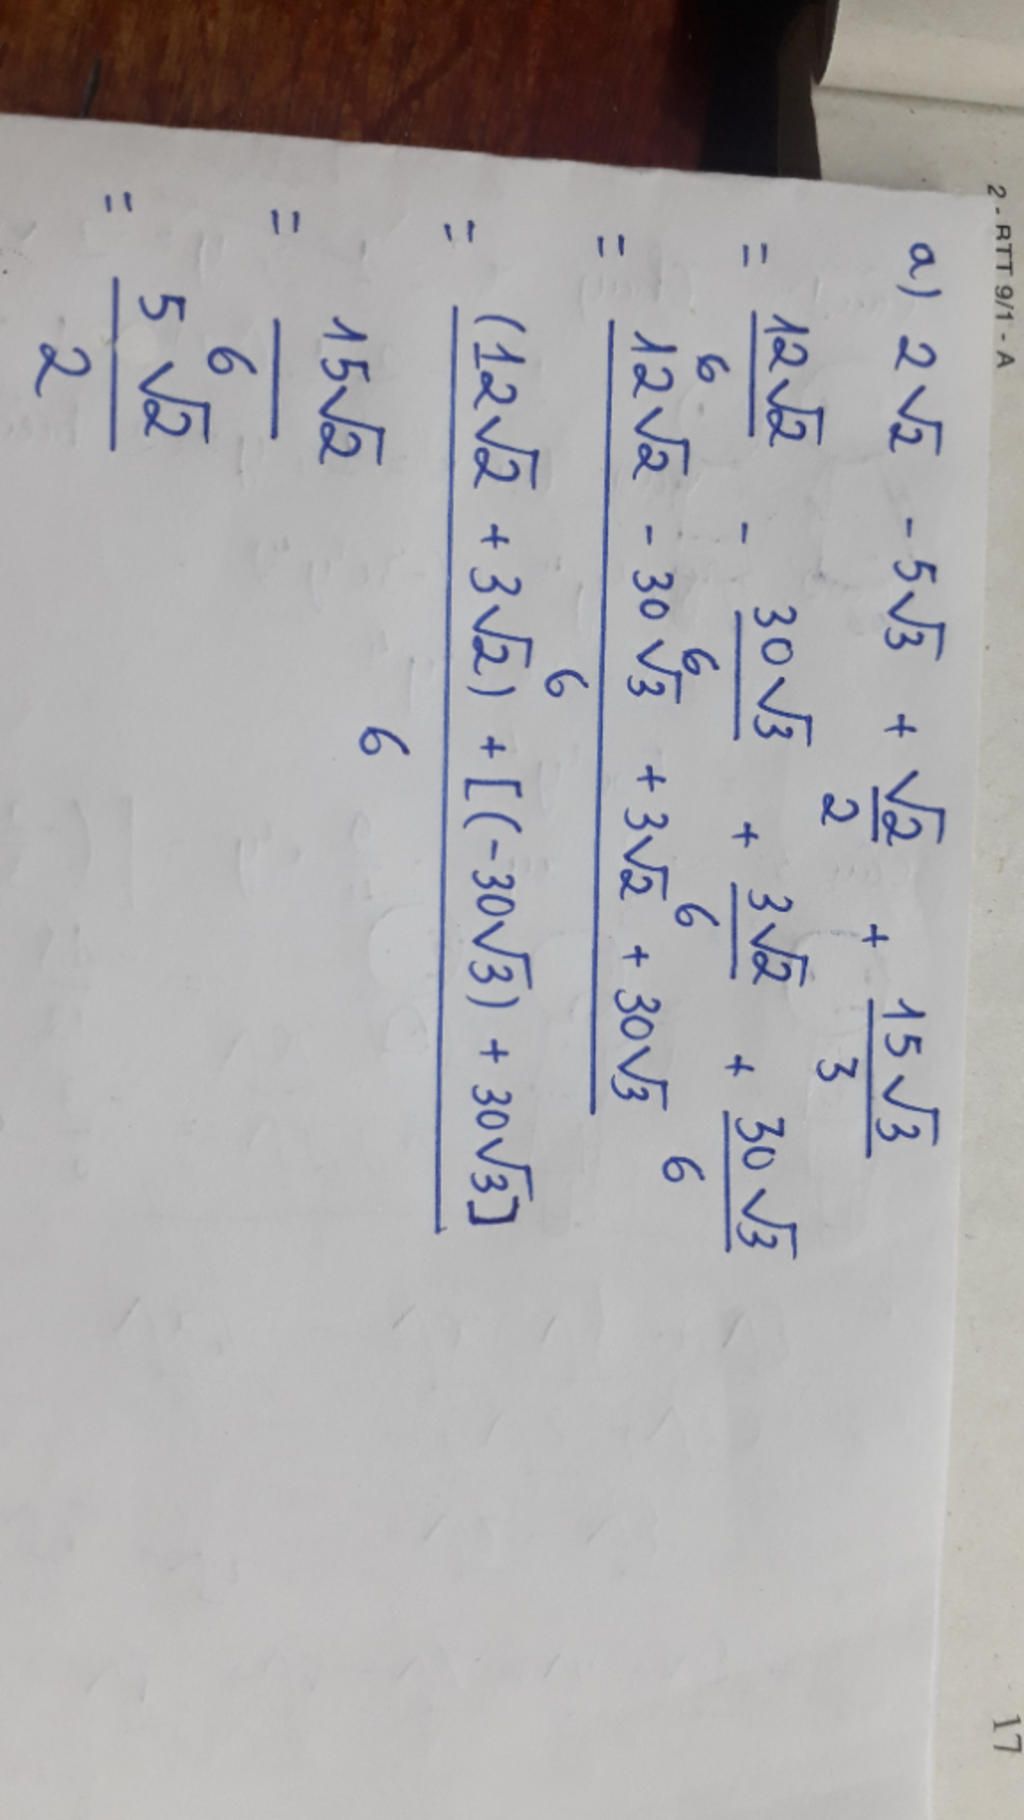 2 - RTT 9/1 - A
17
a) 2√2 - 5√3 + √2/2 + 15√3/3
= 12√2/6 - 30√3/6 + 3√2/6 + 30√3/6
= (12√2 - 30√3 + 3√2 + 30√3)/6
= ((12√2 + 3√2) + [(-30√3) + 30√3])/6
= 15√2/6
= 5√2/2